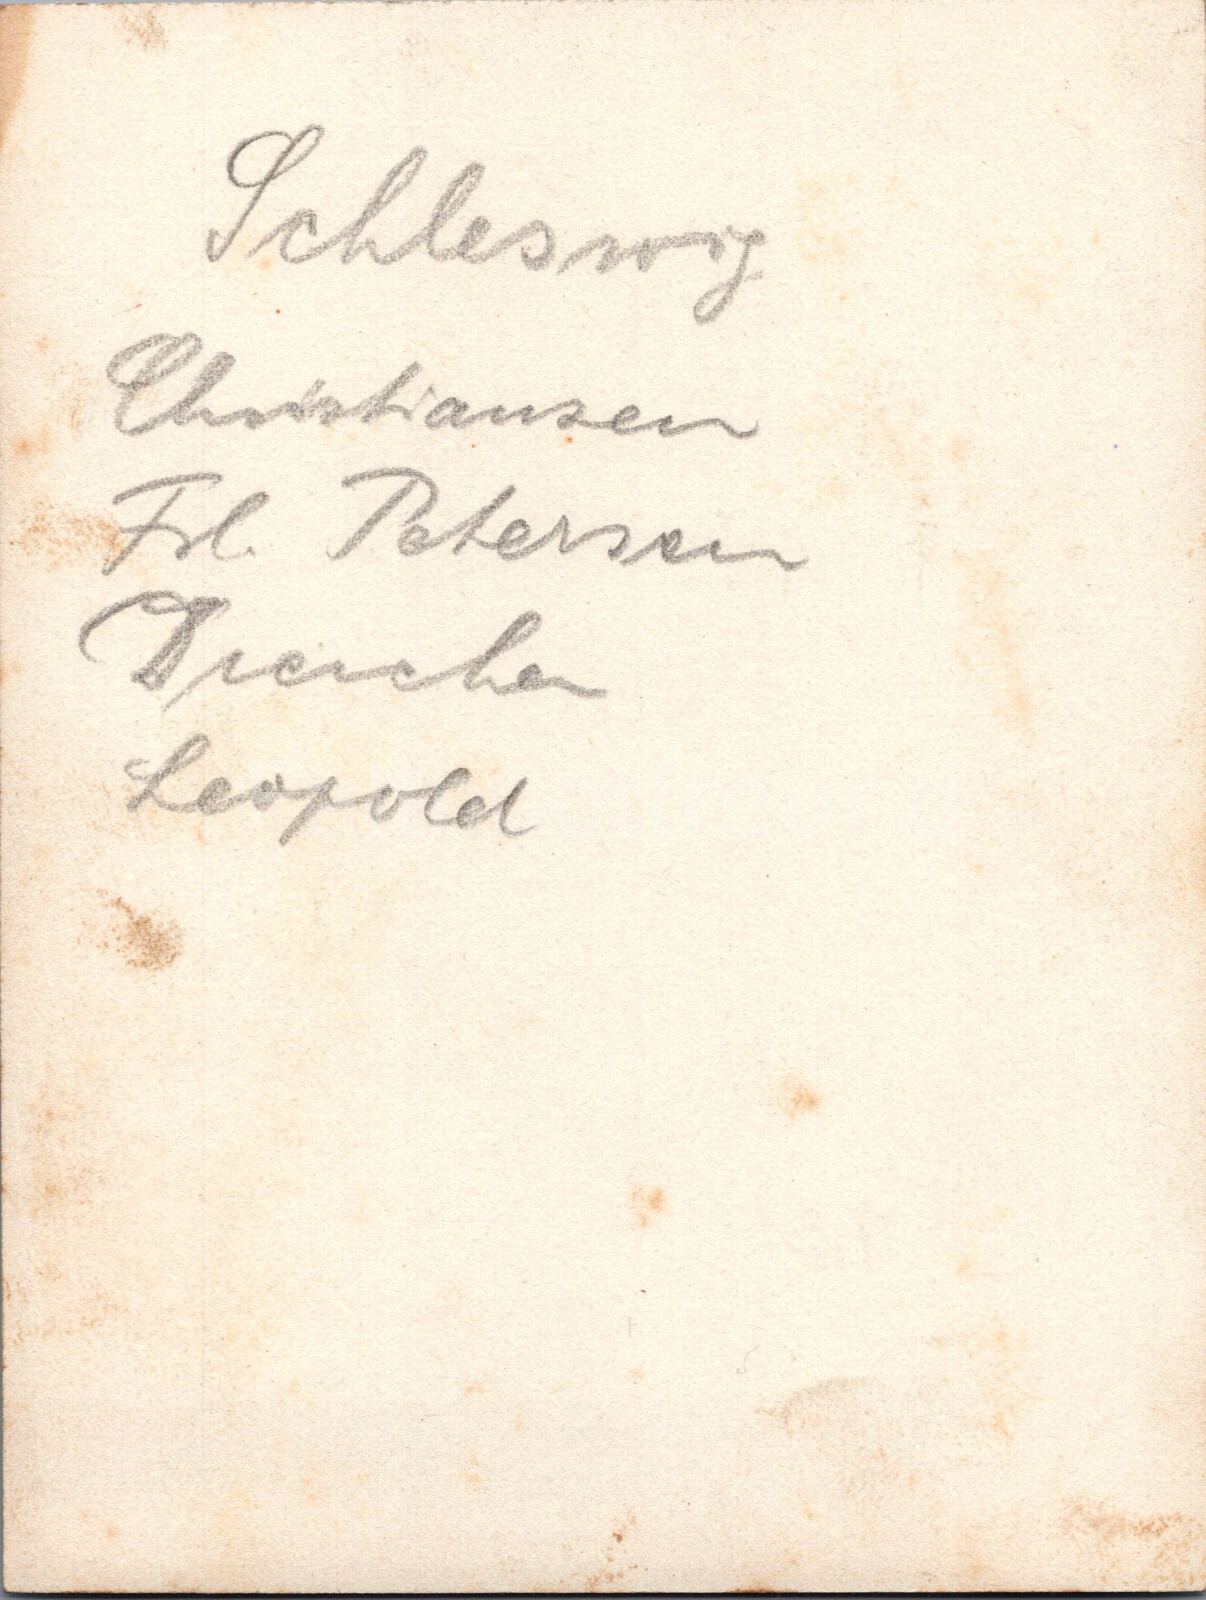 Schleswig
Christiansen
Frl. Petersen
Leopold